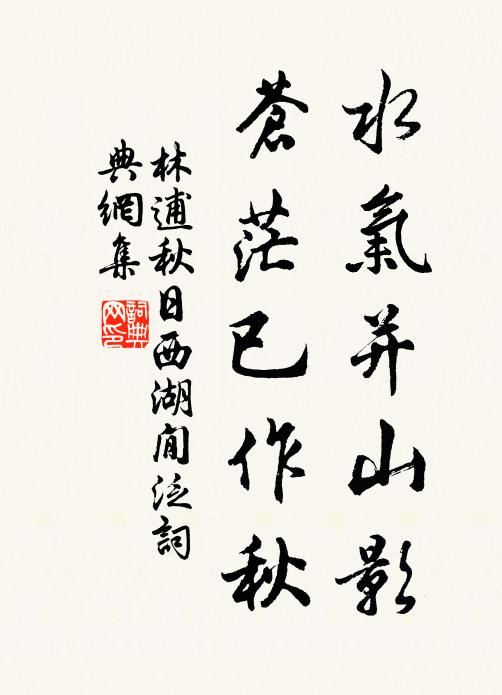 水氣并山影
蒼茫已作秋
林逋秋日西湖閒泛詞
典網集
詞典
网印